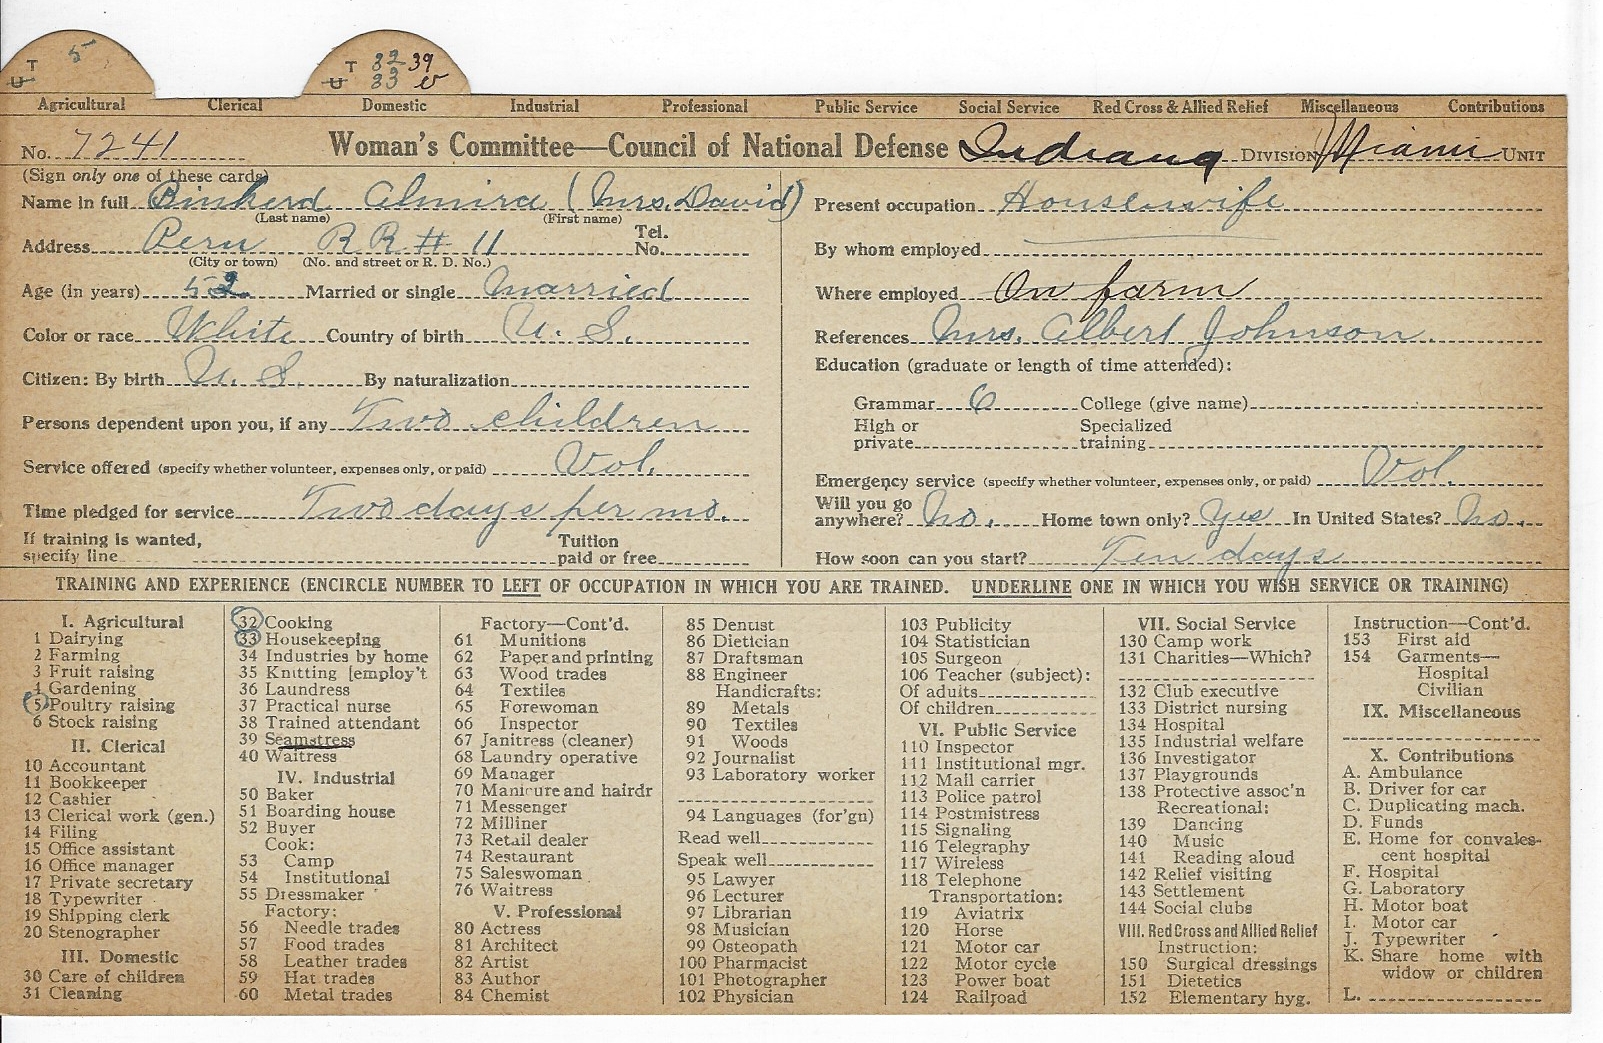 T 5 T 32 39
U U 33 v
Agricultural Clerical Domestic Industrial Professional Public Service Social Service Red Cross & Allied Relief Miscellaneous Contributions
No. 7241 Woman's Committee—Council of National Defense Indiana DIVISION Miami UNIT
(Sign only one of these cards)
Name in full Binkerd Almira (Mrs. David)
(Last name) (First name)
Address Peru R R # 11 Tel. No.
(City or town) (No. and street or R. D. No.)
Age (in years) 52 Married or single Married
Color or race White Country of birth U. S.
Citizen: By birth U. S. By naturalization
Persons dependent upon you, if any Two children
Service offered (specify whether volunteer, expenses only, or paid) Vol.
Time pledged for service Two days per mo.
If training is wanted, specify line Tuition paid or free
Present occupation Housewife
By whom employed
Where employed On farm
References Mrs. Albert Johnson.
Education (graduate or length of time attended):
Grammar 6 College (give name)
High or private Specialized training
Emergency service (specify whether volunteer, expenses only, or paid) Vol.
Will you go anywhere? No. Home town only? Yes In United States? No.
How soon can you start? Ten days
TRAINING AND EXPERIENCE (ENCIRCLE NUMBER TO LEFT OF OCCUPATION IN WHICH YOU ARE TRAINED. UNDERLINE ONE IN WHICH YOU WISH SERVICE OR TRAINING)
I. Agricultural
1 Dairying
2 Farming
3 Fruit raising
4 Gardening
5 Poultry raising
6 Stock raising
II. Clerical
10 Accountant
11 Bookkeeper
12 Cashier
13 Clerical work (gen.)
14 Filing
15 Office assistant
16 Office manager
17 Private secretary
18 Typewriter
19 Shipping clerk
20 Stenographer
III. Domestic
30 Care of children
31 Cleaning
32 Cooking
33 Housekeeping
34 Industries by home
35 Knitting [employ't
36 Laundress
37 Practical nurse
38 Trained attendant
39 Seamstress
40 Waitress
IV. Industrial
50 Baker
51 Boarding house
52 Buyer
Cook:
53 Camp
54 Institutional
55 Dressmaker
Factory:
56 Needle trades
57 Food trades
58 Leather trades
59 Hat trades
60 Metal trades
Factory—Cont'd.
61 Munitions
62 Paper and printing
63 Wood trades
64 Textiles
65 Forewoman
66 Inspector
67 Janitress (cleaner)
68 Laundry operative
69 Manager
70 Manicure and hairdr
71 Messenger
72 Milliner
73 Retail dealer
74 Restaurant
75 Saleswoman
76 Waitress
V. Professional
80 Actress
81 Architect
82 Artist
83 Author
84 Chemist
85 Dentist
86 Dietician
87 Draftsman
88 Engineer
Handicrafts:
89 Metals
90 Textiles
91 Woods
92 Journalist
93 Laboratory worker
94 Languages (for'gn)
Read well
Speak well
95 Lawyer
96 Lecturer
97 Librarian
98 Musician
99 Osteopath
100 Pharmacist
101 Photographer
102 Physician
103 Publicity
104 Statistician
105 Surgeon
106 Teacher (subject):
Of adults
Of children
VI. Public Service
110 Inspector
111 Institutional mgr.
112 Mail carrier
113 Police patrol
114 Postmistress
115 Signaling
116 Telegraphy
117 Wireless
118 Telephone
Transportation:
119 Aviatrix
120 Horse
121 Motor car
122 Motor cycle
123 Power boat
124 Railroad
VII. Social Service
130 Camp work
131 Charities—Which?
132 Club executive
133 District nursing
134 Hospital
135 Industrial welfare
136 Investigator
137 Playgrounds
138 Protective assoc'n
Recreational:
139 Dancing
140 Music
141 Reading aloud
142 Relief visiting
143 Settlement
144 Social clubs
VIII. Red Cross and Allied Relief
Instruction:
150 Surgical dressings
151 Dietetics
152 Elementary hyg.
Instruction—Cont'd.
153 First aid
154 Garments—
Hospital
Civilian
IX. Miscellaneous
X. Contributions
A. Ambulance
B. Driver for car
C. Duplicating mach.
D. Funds
E. Home for convales-
cent hospital
F. Hospital
G. Laboratory
H. Motor boat
I. Motor car
J. Typewriter
K. Share home with
widow or children
L.